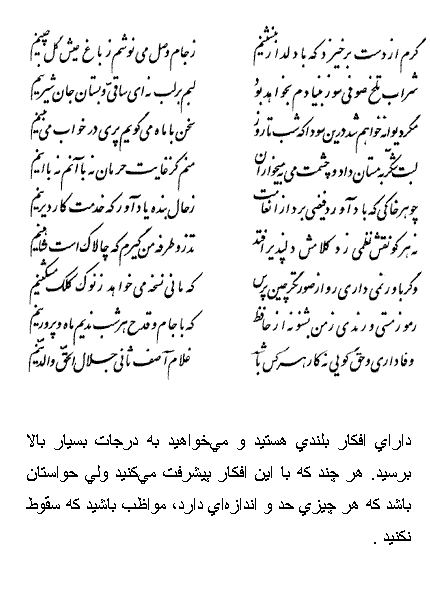 گرم از دست برخیزد که با دلدار بنشینم ز جام وصل می نوشم ز باغ عیش گل چینم
شراب تلخ صوفی سوز بنیادم بخواهد برد لبم بر لب نه ای ساقی و بستان جان شیرینم
مگر دیوانه خواهم شد درین سودا که شب تا روز سخن با ماه می گویم پری در خواب می بینم
لبت شکر به مستان داد و چشمت می به میخواران منم کز غایت حرمان نه با آنم نه با اینم
چو هر خاکی که باد آورد فیضی برد از انعامت ز حال بنده یاد آور که خدمت کار دیرینم
نه هر کو نقش نظمی زد کلامش دلپذیر افتد تذرو طرفه من گیرم که چالاک است شاهینم
وگر باور نمی داری رو از صورتگر چین پرس که مانی نسخه می خواهد ز نوک کلک مشکینم
رموز مستی و رندی ز من بشنو نه از حافظ که با جام و قدح هر شب ندیم ماه و پروینم
وفاداری و حق گویی نه کار هر کسی باشد غلام آصف ثانی جلال الحق والدینم
داراي افكار بلندي هستيد و مي‌خواهيد به درجات بسيار بالا
برسيد. هر چند كه با اين افكار پيشرفت مي‌كنيد ولي حواستان
باشد كه هر چيزي حد و اندازه‌اي دارد، مواظب باشيد كه سقوط
نكنيد .